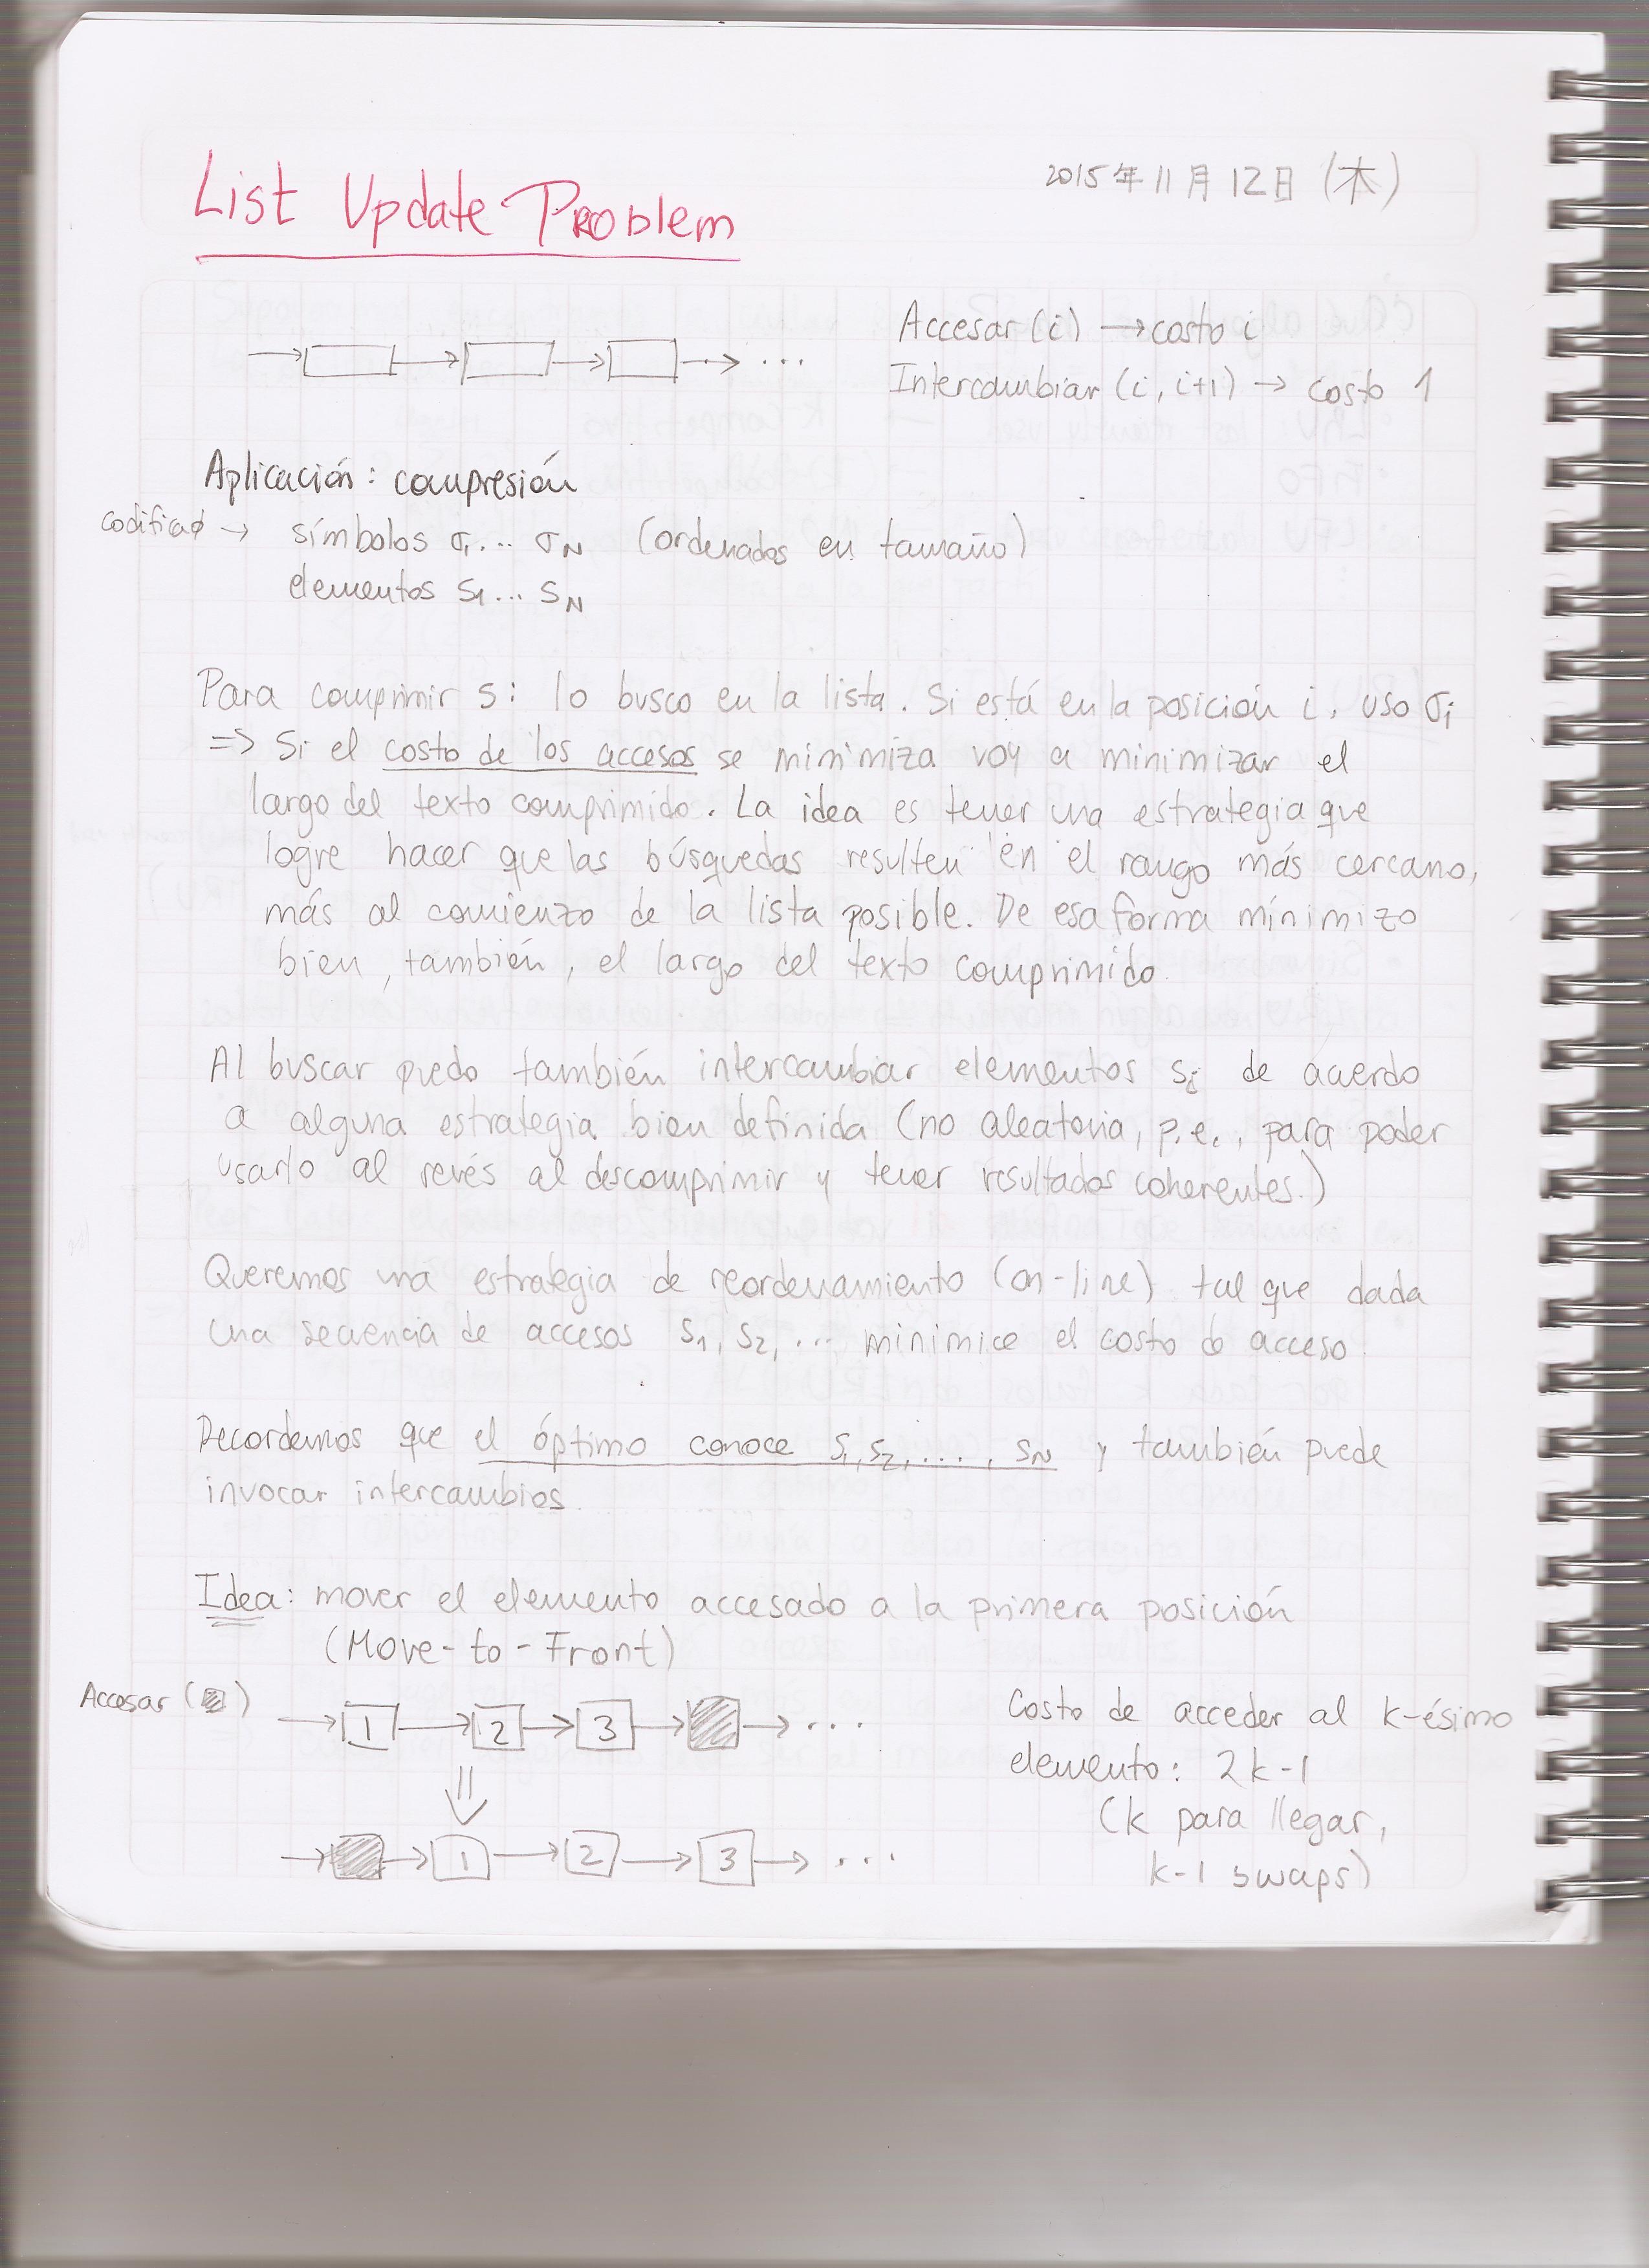 List Update Problem
2015年11月12日 (木)
Accesar (i) → costo i
Intercambiar (i, i+1) → costo 1
Aplicación: compresión
→ símbolos σ1 ... σN (ordenados en tamaño)
elementos s1 ... sN
Para comprimir s: lo busco en la lista. Si está en la posición i, uso σi
=> Si el costo de los accesos se minimiza voy a minimizar el
largo del texto comprimido. La idea es tener una estrategia que
logre hacer que las búsquedas resulten en el rango más cercano,
más al comienzo de la lista posible. De esa forma minimizo
bien, también, el largo del texto comprimido.
Al buscar puedo también intercambiar elementos si de acuerdo
a alguna estrategia bien definida (no aleatoria, p.e., para poder
usarlo al revés al descomprimir y tener resultados coherentes.)
Queremos una estrategia de reordenamiento (on-line) tal que dada
una secuencia de accesos s1, s2, ... minimice el costo de acceso.
Recordemos que el óptimo conoce s1, s2, ..., sN y también puede
invocar intercambios.
Idea: mover el elemento accesado a la primera posición
(Move-to-Front)
Accesar ( )
→ 1 → 2 → 3 → → ...
Costo de acceder al k-ésimo
elemento: 2k-1
(k para llegar,
k-1 swaps)
→ → 1 → 2 → 3 → ...